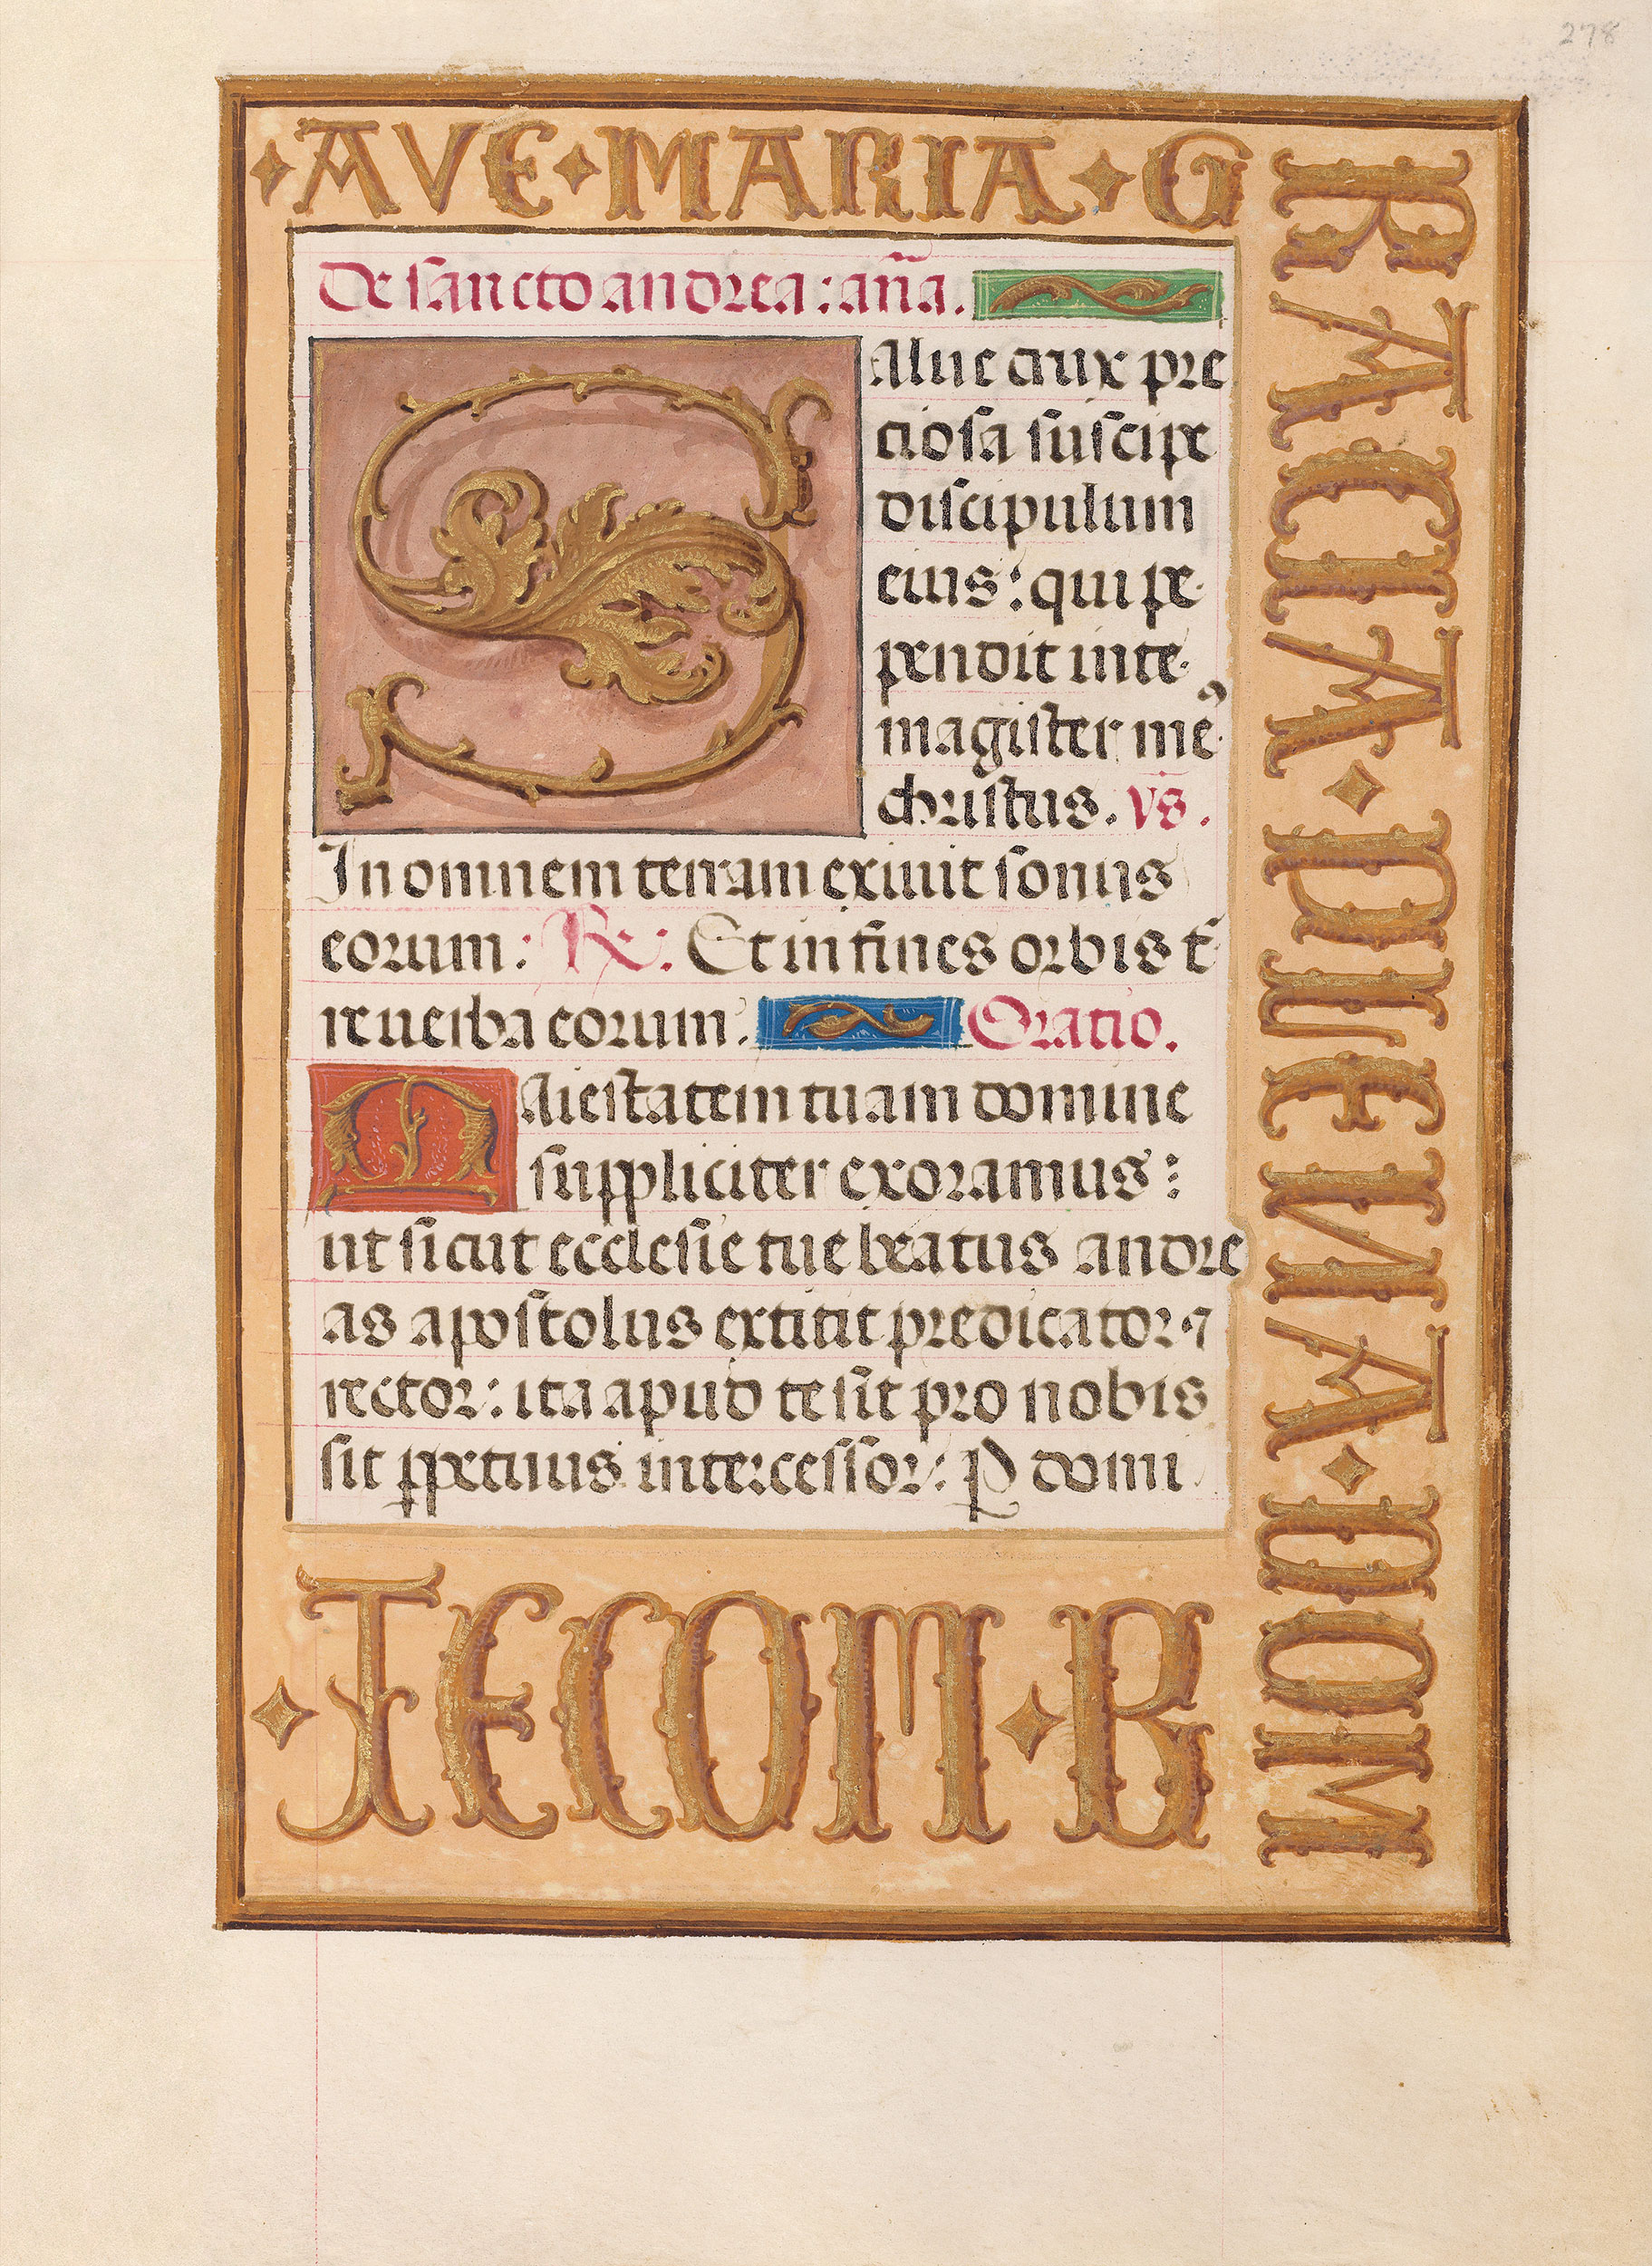 278
·AVE·MARIA·G
RACIA·PLENA·DOM
De sancto andrea: an̄a.
SAlue crux pre
ciosa suscipe
discipulum
eius: qui pe
pendit in te
magister me⁹
christus. Vs.
In omnem terram exiuit sonus
eorum: ℟: Et in fines orbis t̄
re uerba eorum. Oratio.
MAiestatem tuam domine
suppliciter exoramus:
ut sicut ecclesie tue beatus andre
as apostolus extitit predicator ⁊
rector: ita apud te sit pro nobis
sit ꝑpetuus intercessor: P domi
·TECOM·B